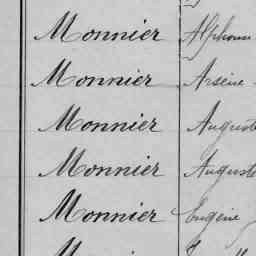 Monnier Alphonse
Monnier Arsène
Monnier Auguste
Monnier Auguste
Monnier Eugène